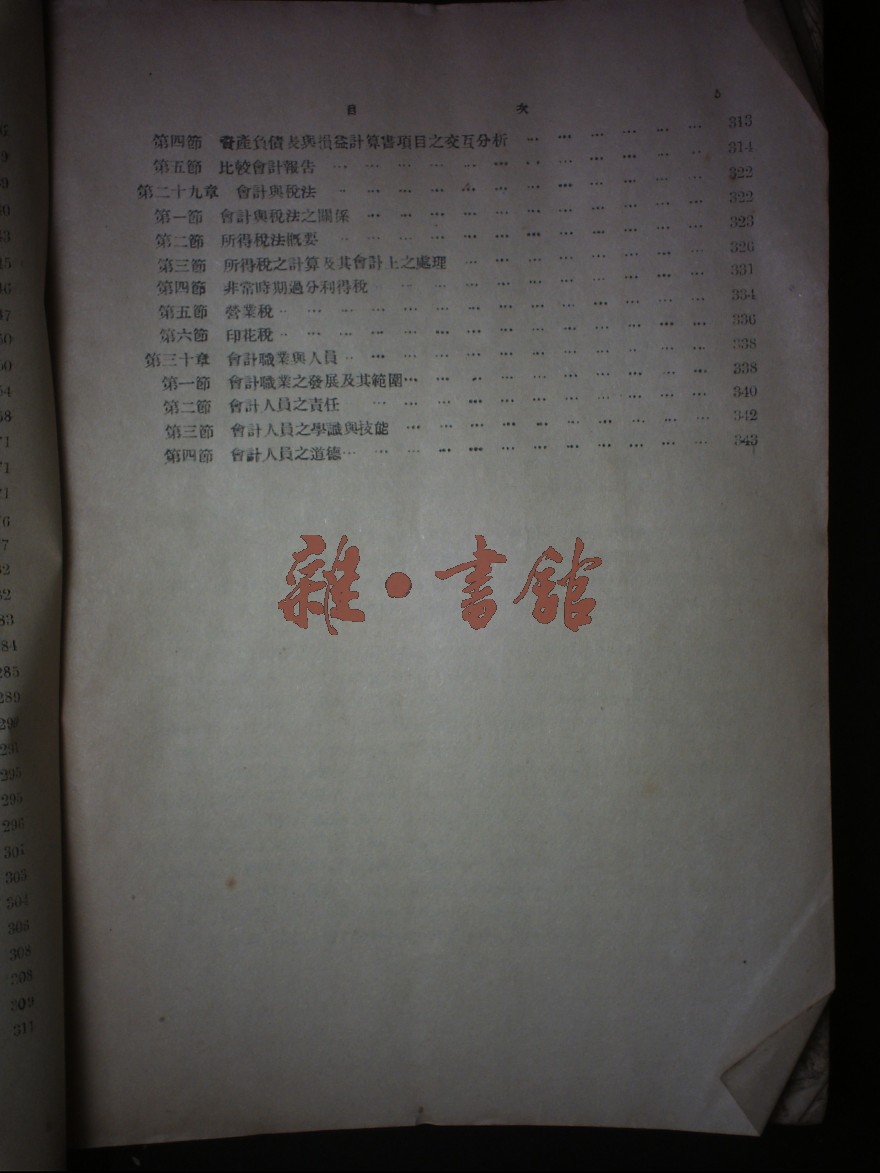 目次 5
第四節 資產負債表與損益計算書項目之交互分析 … … … … … … 313
第五節 比較會計報告 … … … … … … … … … … … … 314
第二十九章 會計與稅法 … … … … … … … … … … … … 322
第一節 會計與稅法之關係 … … … … … … … … … … … 322
第二節 所得稅法概要 … … … … … … … … … … … … 323
第三節 所得稅之計算及其會計上之處理 … … … … … … … … 326
第四節 非常時期過分利得稅 … … … … … … … … … … … 331
第五節 營業稅 … … … … … … … … … … … … … … 334
第六節 印花稅 … … … … … … … … … … … … … … 336
第三十章 會計職業與人員 … … … … … … … … … … … … 338
第一節 會計職業之發展及其範圍 … … … … … … … … … … 338
第二節 會計人員之責任 … … … … … … … … … … … … 340
第三節 會計人員之學識與技能 … … … … … … … … … … 342
第四節 會計人員之道德 … … … … … … … … … … … … 343
雜·書館
283
284
285
289
295
295
296
307
303
304
306
308
308
309
311